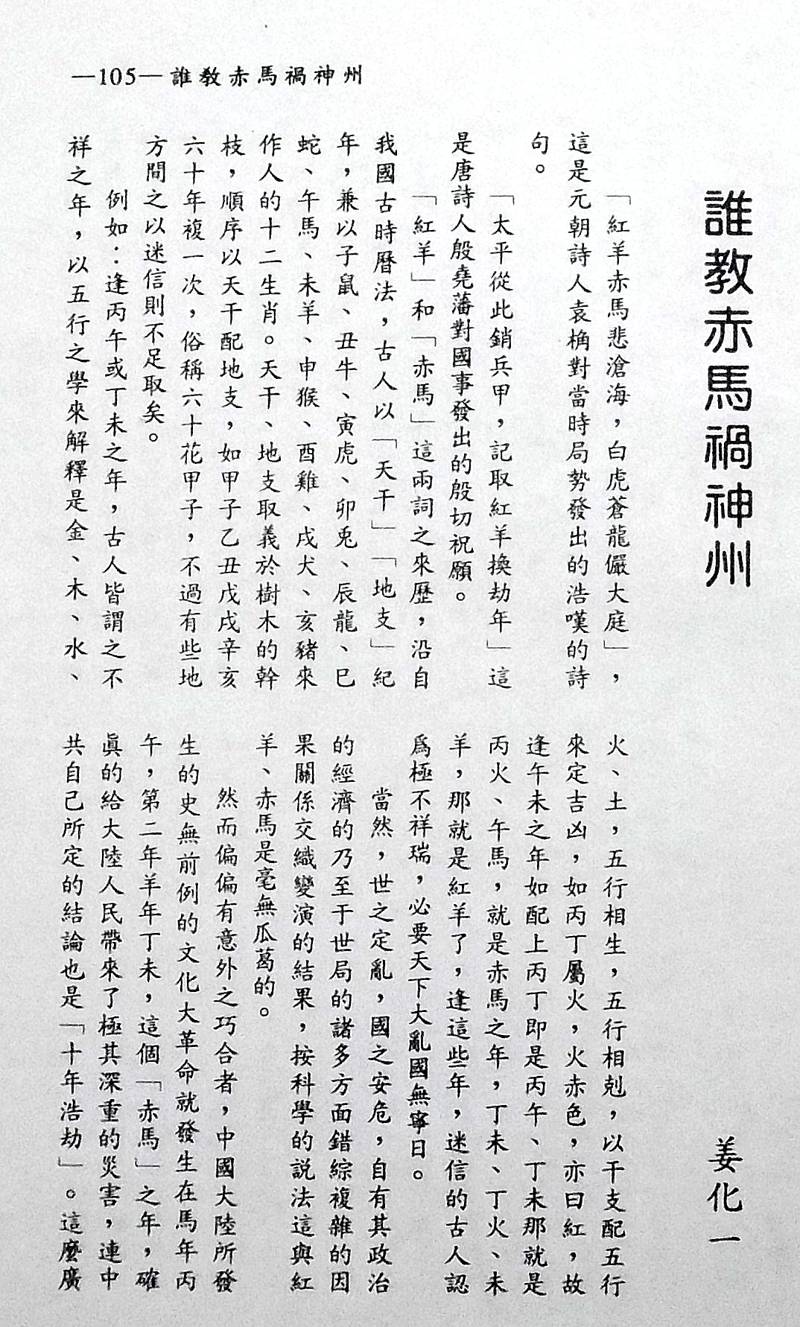 —105—誰教赤馬禍神州
誰教赤馬禍神州
姜化一
「紅羊赤馬悲滄海，白虎蒼龍儼大庭」，
這是元朝詩人袁桷對當時局勢發出的浩嘆的詩
句。
「太平從此銷兵甲，記取紅羊換劫年」這
是唐詩人殷堯藩對國事發出的殷切祝願。
「紅羊」和「赤馬」這兩詞之來歷，沿自
我國古時曆法，古人以「天干」「地支」紀
年，兼以子鼠、丑牛、寅虎、卯兎、辰龍、巳
蛇、午馬、未羊、申猴、酉雞、戌犬、亥豬來
作人的十二生肖。天干、地支取義於樹木的幹
枝，順序以天干配地支，如甲子乙丑戊戌辛亥
六十年複一次，俗稱六十花甲子，不過有些地
方間之以迷信則不足取矣。
例如：逢丙午或丁未之年，古人皆謂之不
祥之年，以五行之學來解釋是金、木、水、
火、土，五行相生，五行相剋，以干支配五行
來定吉凶，如丙丁屬火，火赤色，亦曰紅，故
逢午未之年如配上丙丁即是丙午、丁未那就是
丙火、午馬，就是赤馬之年，丁未、丁火、未
羊，那就是紅羊了，逢這些年，迷信的古人認
爲極不祥瑞，必要天下大亂國無寧日。
當然，世之定亂，國之安危，自有其政治
的經濟的乃至于世局的諸多方面錯綜複雜的因
果關係交織變演的結果，按科學的說法這與紅
羊、赤馬是毫無瓜葛的。
然而偏偏有意外之巧合者，中國大陸所發
生的史無前例的文化大革命就發生在馬年丙
午，第二年羊年丁未，這個「赤馬」之年，確
眞的給大陸人民帶來了極其深重的災害，連中
共自己所定的結論也是「十年浩劫」。這麼廣